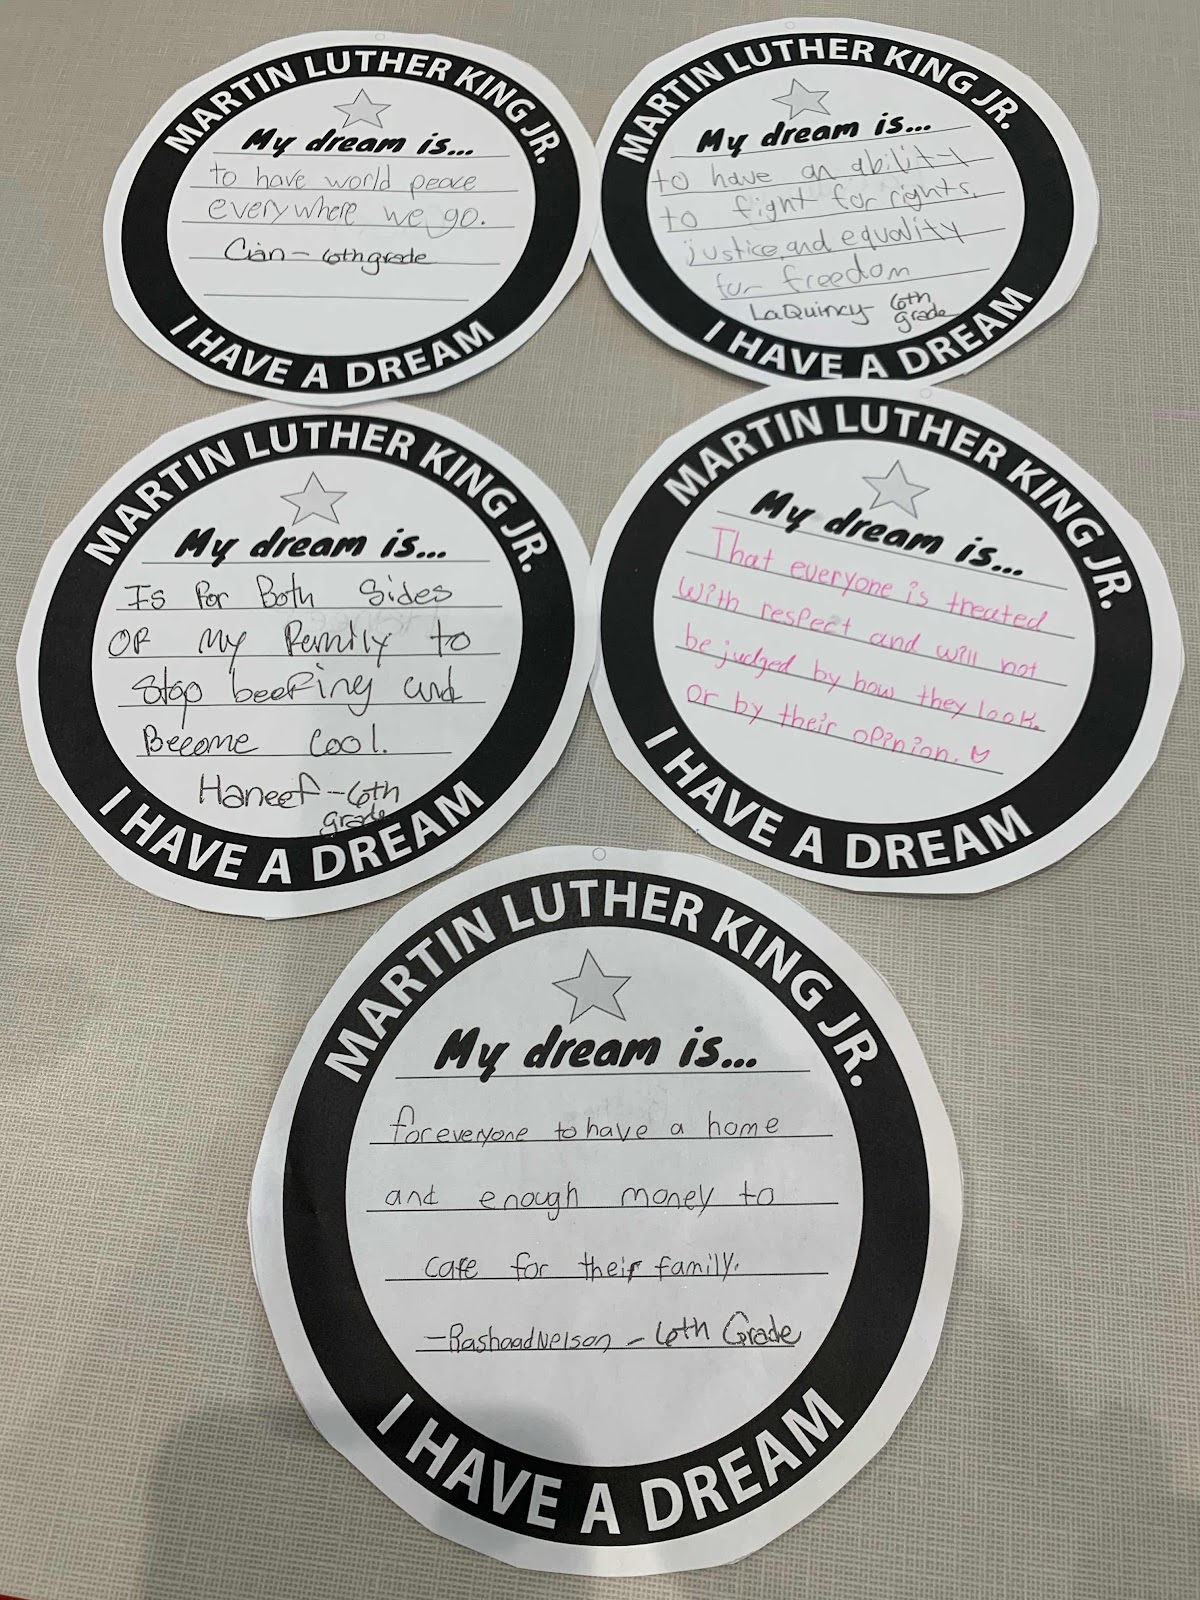 MARTIN LUTHER KING JR.
My dream is...
to have world peace
everywhere we go.
Cian - 6th grade
I HAVE A DREAM
MARTIN LUTHER KING JR.
My dream is...
to have an ability
to fight for rights,
justice, and equality
for freedom
LaQuincy - 6th
grade
I HAVE A DREAM
MARTIN LUTHER KING JR.
My dream is...
Is For Both Sides
OF My Family to
Stop beeFing and
Become Cool.
Haneef - 6th
grade
I HAVE A DREAM
MARTIN LUTHER KING JR.
My dream is...
That everyone is treated
with respect and will not
be judged by how they look.
or by their opinion.
I HAVE A DREAM
MARTIN LUTHER KING JR.
My dream is...
for everyone to have a home
and enough money to
care for their family.
- Rashaad Nelson - 6th Grade
I HAVE A DREAM